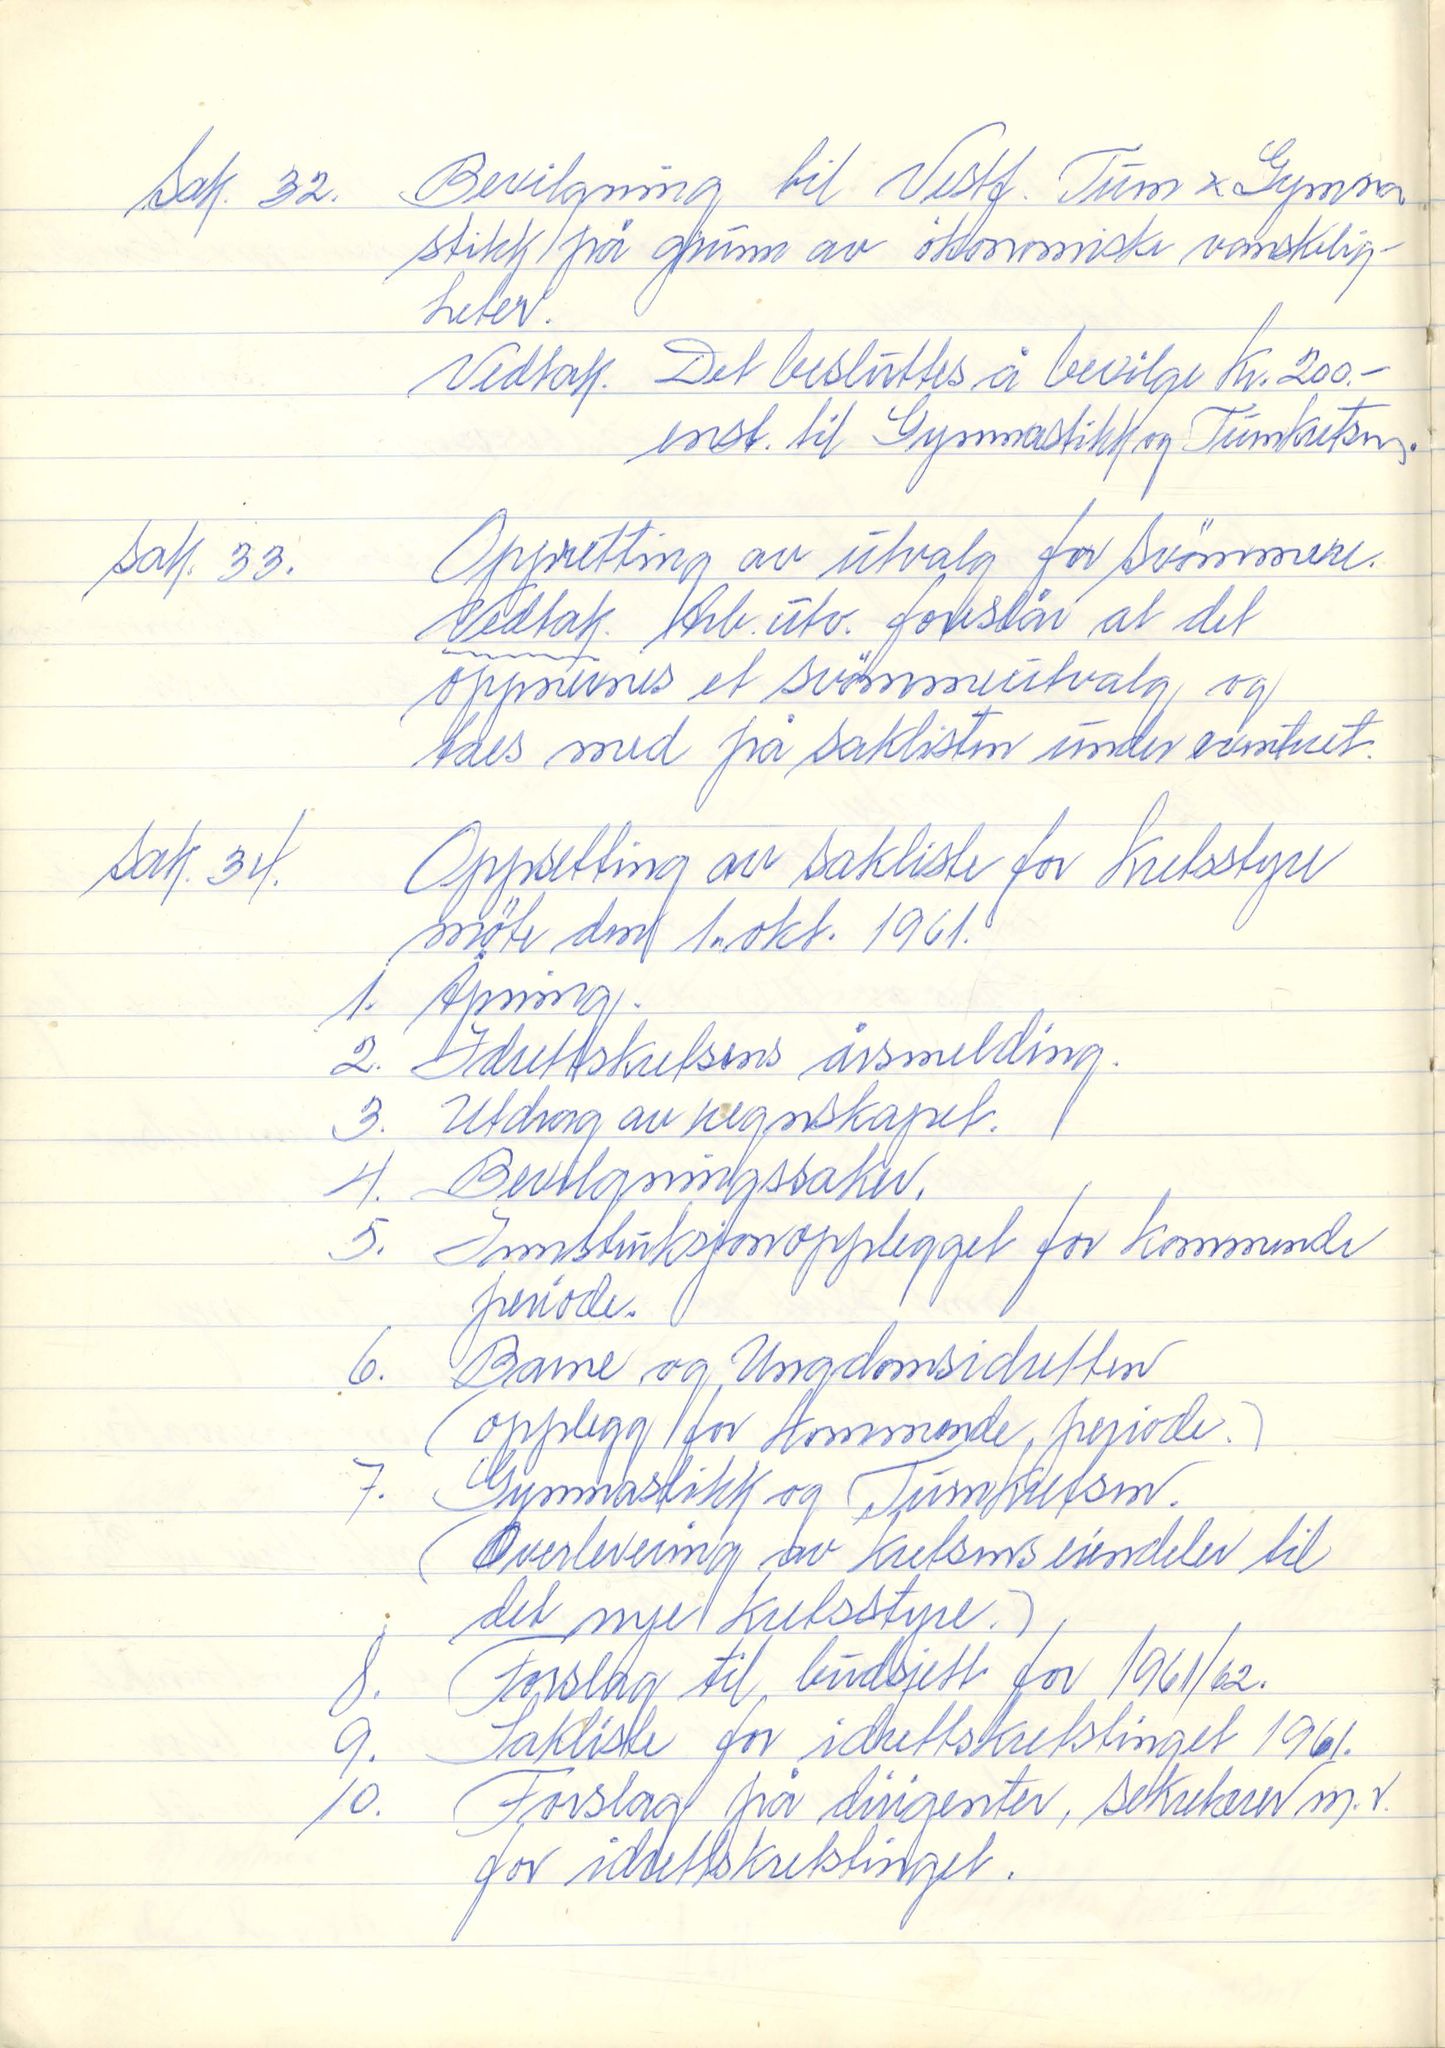 Sak. 32. Bevilgning til Vestf. Turn & Gymna
stikk på grunn av ökonomiske vanskelig-
heter.
Vedtak. Det besluttes å bevilge kr. 200.-
enst. til Gymnastikk og Turnkretsen.
Sak. 33. Oppretting av utvalg for svömmere.
Vedtak. Arb. utv. foreslår at det
oppnevnes et svömmeutvalg, og
taes med på saklisten under eventuet.
Sak. 34. Oppsetting av sakliste for kretsstyre
möte den 1. okt. 1961.
1. Åpning.
2. Idrettskretsens årsmelding.
3. Utdrag av regnskapet.
4. Bevilgningssaker.
5. Innstruksjonopplegget for kommende
periode.
6. Barne og Ungdomsidretten
(opplegg for kommende periode.)
7. Gymnastikk og Turnkretsen.
(Overlevering av kretsens eiendeler til
det nye kretsstyre.)
8. Forslag til budsjett for 1961/62.
9. Sakliste for idrettskretstinget 1961.
10. Forslag på dirigenter, sekretærer m.v.
for idrettskretstinget.